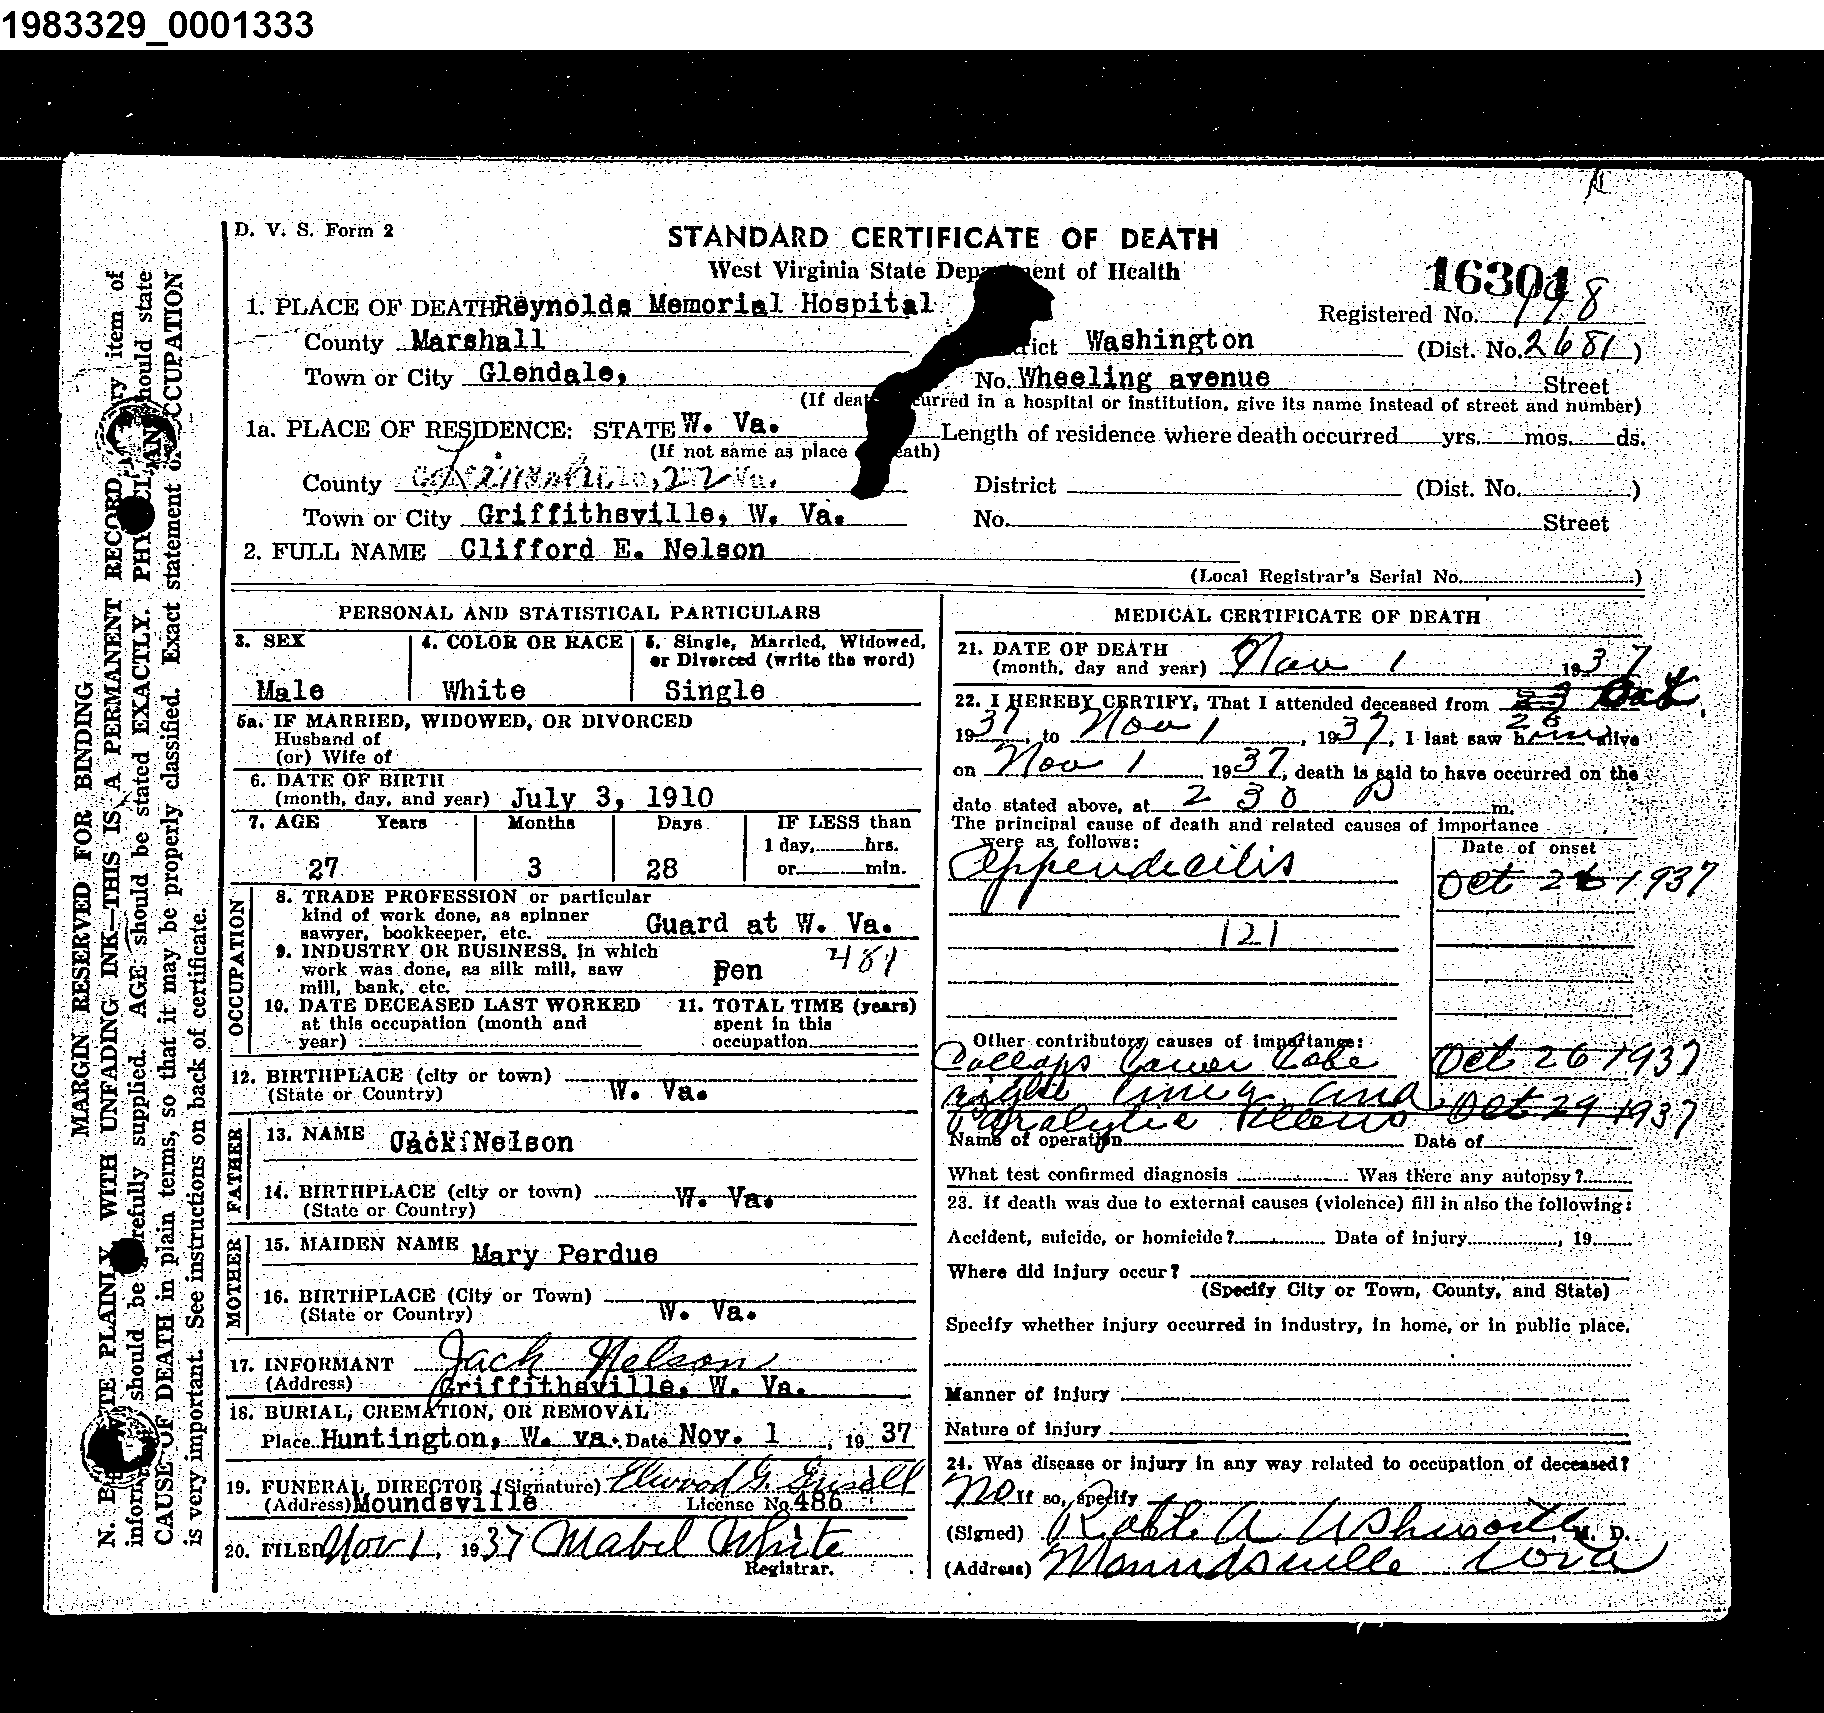 1983329_0001333
D. V. S. Form 2
STANDARD CERTIFICATE OF DEATH
West Virginia State Department of Health
16301
Registered No. 198
1. PLACE OF DEATH Reynolds Memorial Hospital
County Marshall District Washington (Dist. No. 2681)
Town or City Glendale, No. Wheeling avenue Street
(If death occurred in a hospital or institution, give its name instead of street and number)
1a. PLACE OF RESIDENCE: STATE W. Va. Length of residence where death occurred yrs. mos. ds.
(If not same as place of death)
County District (Dist. No. )
Town or City Griffithsville, W. Va. No. Street
2. FULL NAME Clifford E. Nelson
(Local Registrar's Serial No. )
PERSONAL AND STATISTICAL PARTICULARS
3. SEX Male
4. COLOR OR RACE White
5. Single, Married, Widowed, or Divorced (write the word) Single
5a. IF MARRIED, WIDOWED, OR DIVORCED
Husband of
(or) Wife of
6. DATE OF BIRTH
(month, day, and year) July 3, 1910
7. AGE Years Months Days IF LESS than
1 day, hrs.
27 3 28 or min.
OCCUPATION
8. TRADE PROFESSION or particular
kind of work done, as spinner
sawyer, bookkeeper, etc. Guard at W. Va.
9. INDUSTRY OR BUSINESS, in which
work was done, as silk mill, saw
mill, bank, etc. Pen 481
10. DATE DECEASED LAST WORKED
at this occupation (month and
year)
11. TOTAL TIME (years)
spent in this
occupation
12. BIRTHPLACE (city or town)
(State or Country) W. Va.
FATHER
13. NAME Jack Nelson
14. BIRTHPLACE (city or town) W. Va.
(State or Country)
MOTHER
15. MAIDEN NAME Mary Perdue
16. BIRTHPLACE (City or Town)
(State or Country) W. Va.
17. INFORMANT Jack Nelson
(Address) Griffithsville, W. Va.
18. BURIAL, CREMATION, OR REMOVAL
Place Huntington, W. va. Date Nov. 1, 1937
19. FUNERAL DIRECTOR (Signature) Elwood G. Grisell
(Address) Moundsville License No. 486
20. FILED Nov 1, 1937 Mabel White
Registrar.
MEDICAL CERTIFICATE OF DEATH
21. DATE OF DEATH
(month, day and year) Nov 1 1937
22. I HEREBY CERTIFY, That I attended deceased from Oct 26
1937, to Nov 1, 1937, I last saw him alive
on Nov 1 1937, death is said to have occurred on the
date stated above, at 2 30 P m.
The principal cause of death and related causes of importance
were as follows: Date of onset
Appendicitis Oct 26 1937
121
Other contributory causes of importance:
Collaps lower lobe Oct 26 1937
right lung and
Paralytic Illeus Oct 29 1937
Name of operation Date of
What test confirmed diagnosis Was there any autopsy?
23. If death was due to external causes (violence) fill in also the following:
Accident, suicide, or homicide? Date of injury , 19
Where did injury occur?
(Specify City or Town, County, and State)
Specify whether injury occurred in industry, in home, or in public place.
Manner of injury
Nature of injury
24. Was disease or injury in any way related to occupation of deceased?
No If so, specify
(Signed) Robt A Ashworth, M. D.
(Address) Moundsville W Va
MARGIN RESERVED FOR BINDING
N. B. WRITE PLAINLY WITH UNFADING INK—THIS IS A PERMANENT RECORD. Every item of
information should be carefully supplied. AGE should be stated EXACTLY. PHYSICIANS should state
CAUSE OF DEATH in plain terms, so that it may be properly classified. Exact statement of OCCUPATION
is very important. See instructions on back of certificate.